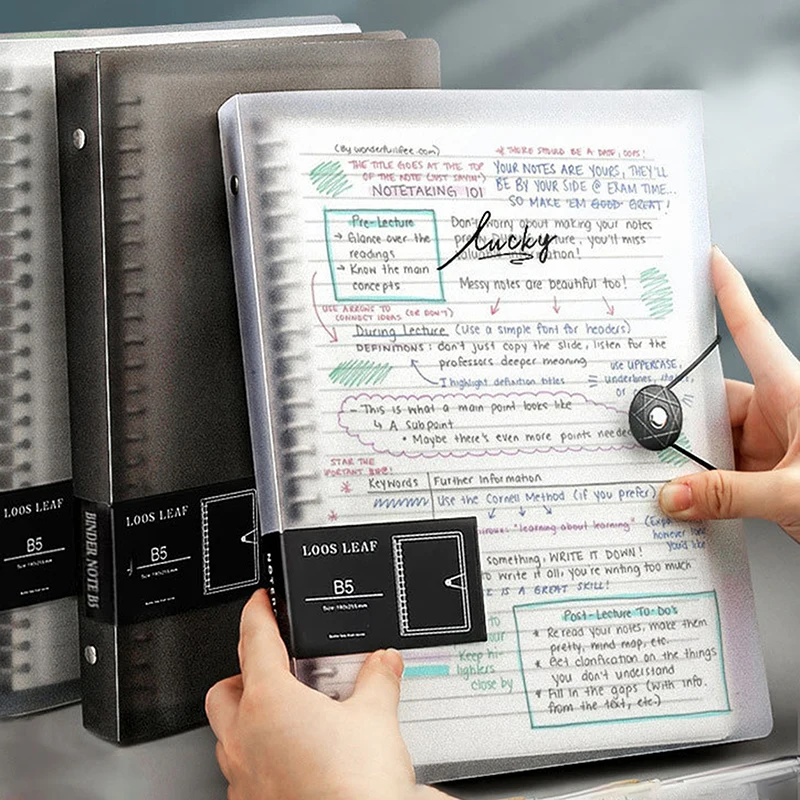 (By wonderfullifee.com)
* THERE SHOULD BE A DATE, OOPS!
THE TITLE GOES AT THE TOP
OF THE NOTE (JUST SAYIN')
NOTETAKING 101
YOUR NOTES ARE YOURS, THEY'LL
BE BY YOUR SIDE @ EXAM TIME...
SO MAKE 'EM GOOD GREAT!
Pre-Lecture
→ Glance over the
readings
→ Know the main
concepts
Don't worry about making your notes
pretty
lecture, you'll miss
valuable information!
lucky
Messy notes are beautiful too!
USE ARROWS TO
CONNECT IDEAS (OR DON'T)
During Lecture (Use a simple font for headers)
DEFINITIONS: don't just copy the slide, listen for the
professors deeper meaning
I highlight definition titles
use UPPERCASE,
underlines, italics,
or
- This is what a main point looks like
↳ A Subpoint
• Maybe there's even more points needed
STAR THE
IMPORTANT
*
Keywords
Further Information
Use the Cornell Method (if you prefer)
"learning about learning"
however long
you'd like
something, WRITE IT DOWN!
to write it all, you're writing too much
IS A GREAT SKILL!
to
your
Keep hi-
lighters
close by
Post-Lecture To-Do's
* Reread your notes, make them
pretty, mind map, etc.
* Get clarification on the things
you don't understand
* Fill in the gaps (with info.
from the text, etc.)
LOOS LEAF
B5
LOOS LEAF
B5
BINDER NOTE B5
LOOS LEAF
B5